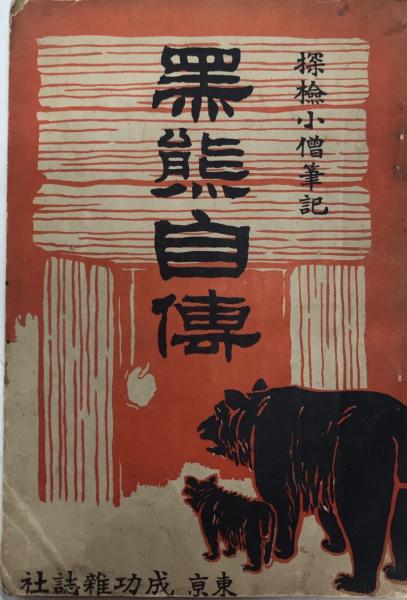 探檢小僧筆記
黑熊自傳
東京 成功雜誌社